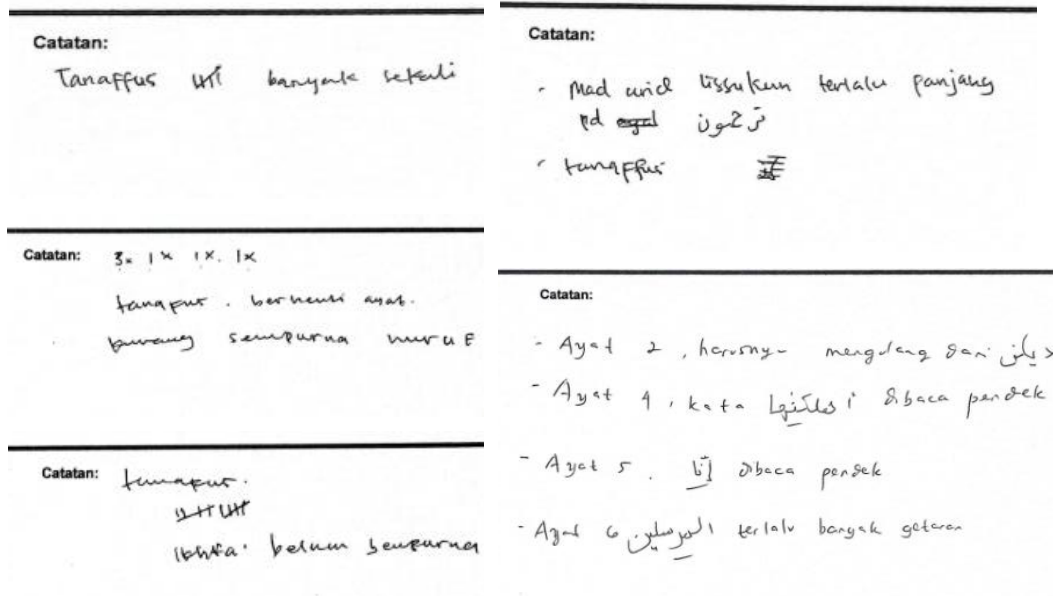 Catatan:
Tanaffus banyak sekali
Catatan: 3x 1x 1x. 1x
tanafus. berhenti ayat.
kurang sempurna huruf
Catatan: tanafus.
Ikhfa' belum sempurna
Catatan:
- Mad arid lissukun terlalu panjang
pd ترحمون
- tanaffus
Catatan:
- Ayat 2, harusnya mengulang dari
- Ayat 4, kata اهلكنها dibaca pendek
- Ayat 5. إنّا dibaca pendek
- Ayat 6 المرسلين terlalu banyak getaran